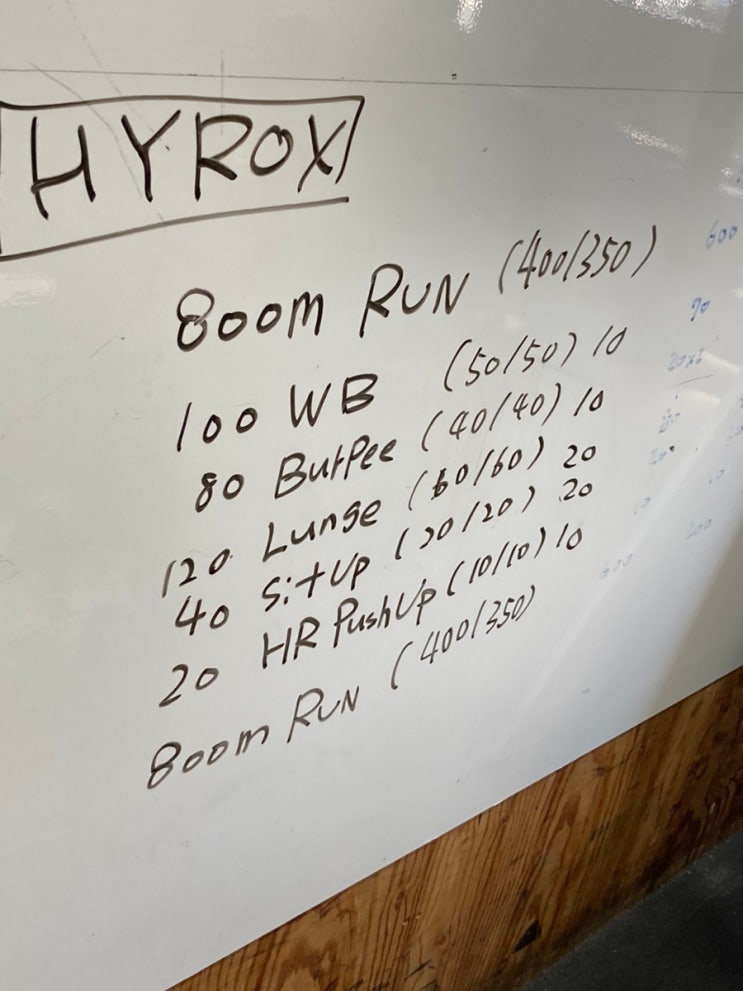 HYROX
800m RUN (400/350)
100 WB (50/50) 10
80 Burpee (40/40) 10
120 Lunge (60/60) 20
40 SitUp (20/20) 20
20 HR PushUp (10/10) 10
800m RUN (400/350)
600